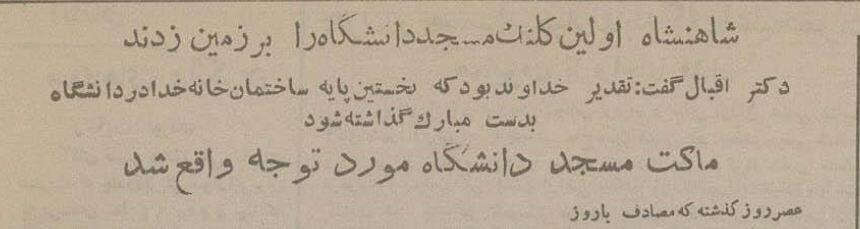 شاهنشاه اولین کلنك مسجد دانشگاه را بر زمین زدند
دکتر اقبال گفت: تقدیر خداوند بود که نخستین پایه ساختمان خانه خدا در دانشگاه
بدست مبارك گذاشته شود
ماکت مسجد دانشگاه مورد توجه واقع شد
عصر روز گذشته که مصادف باروز